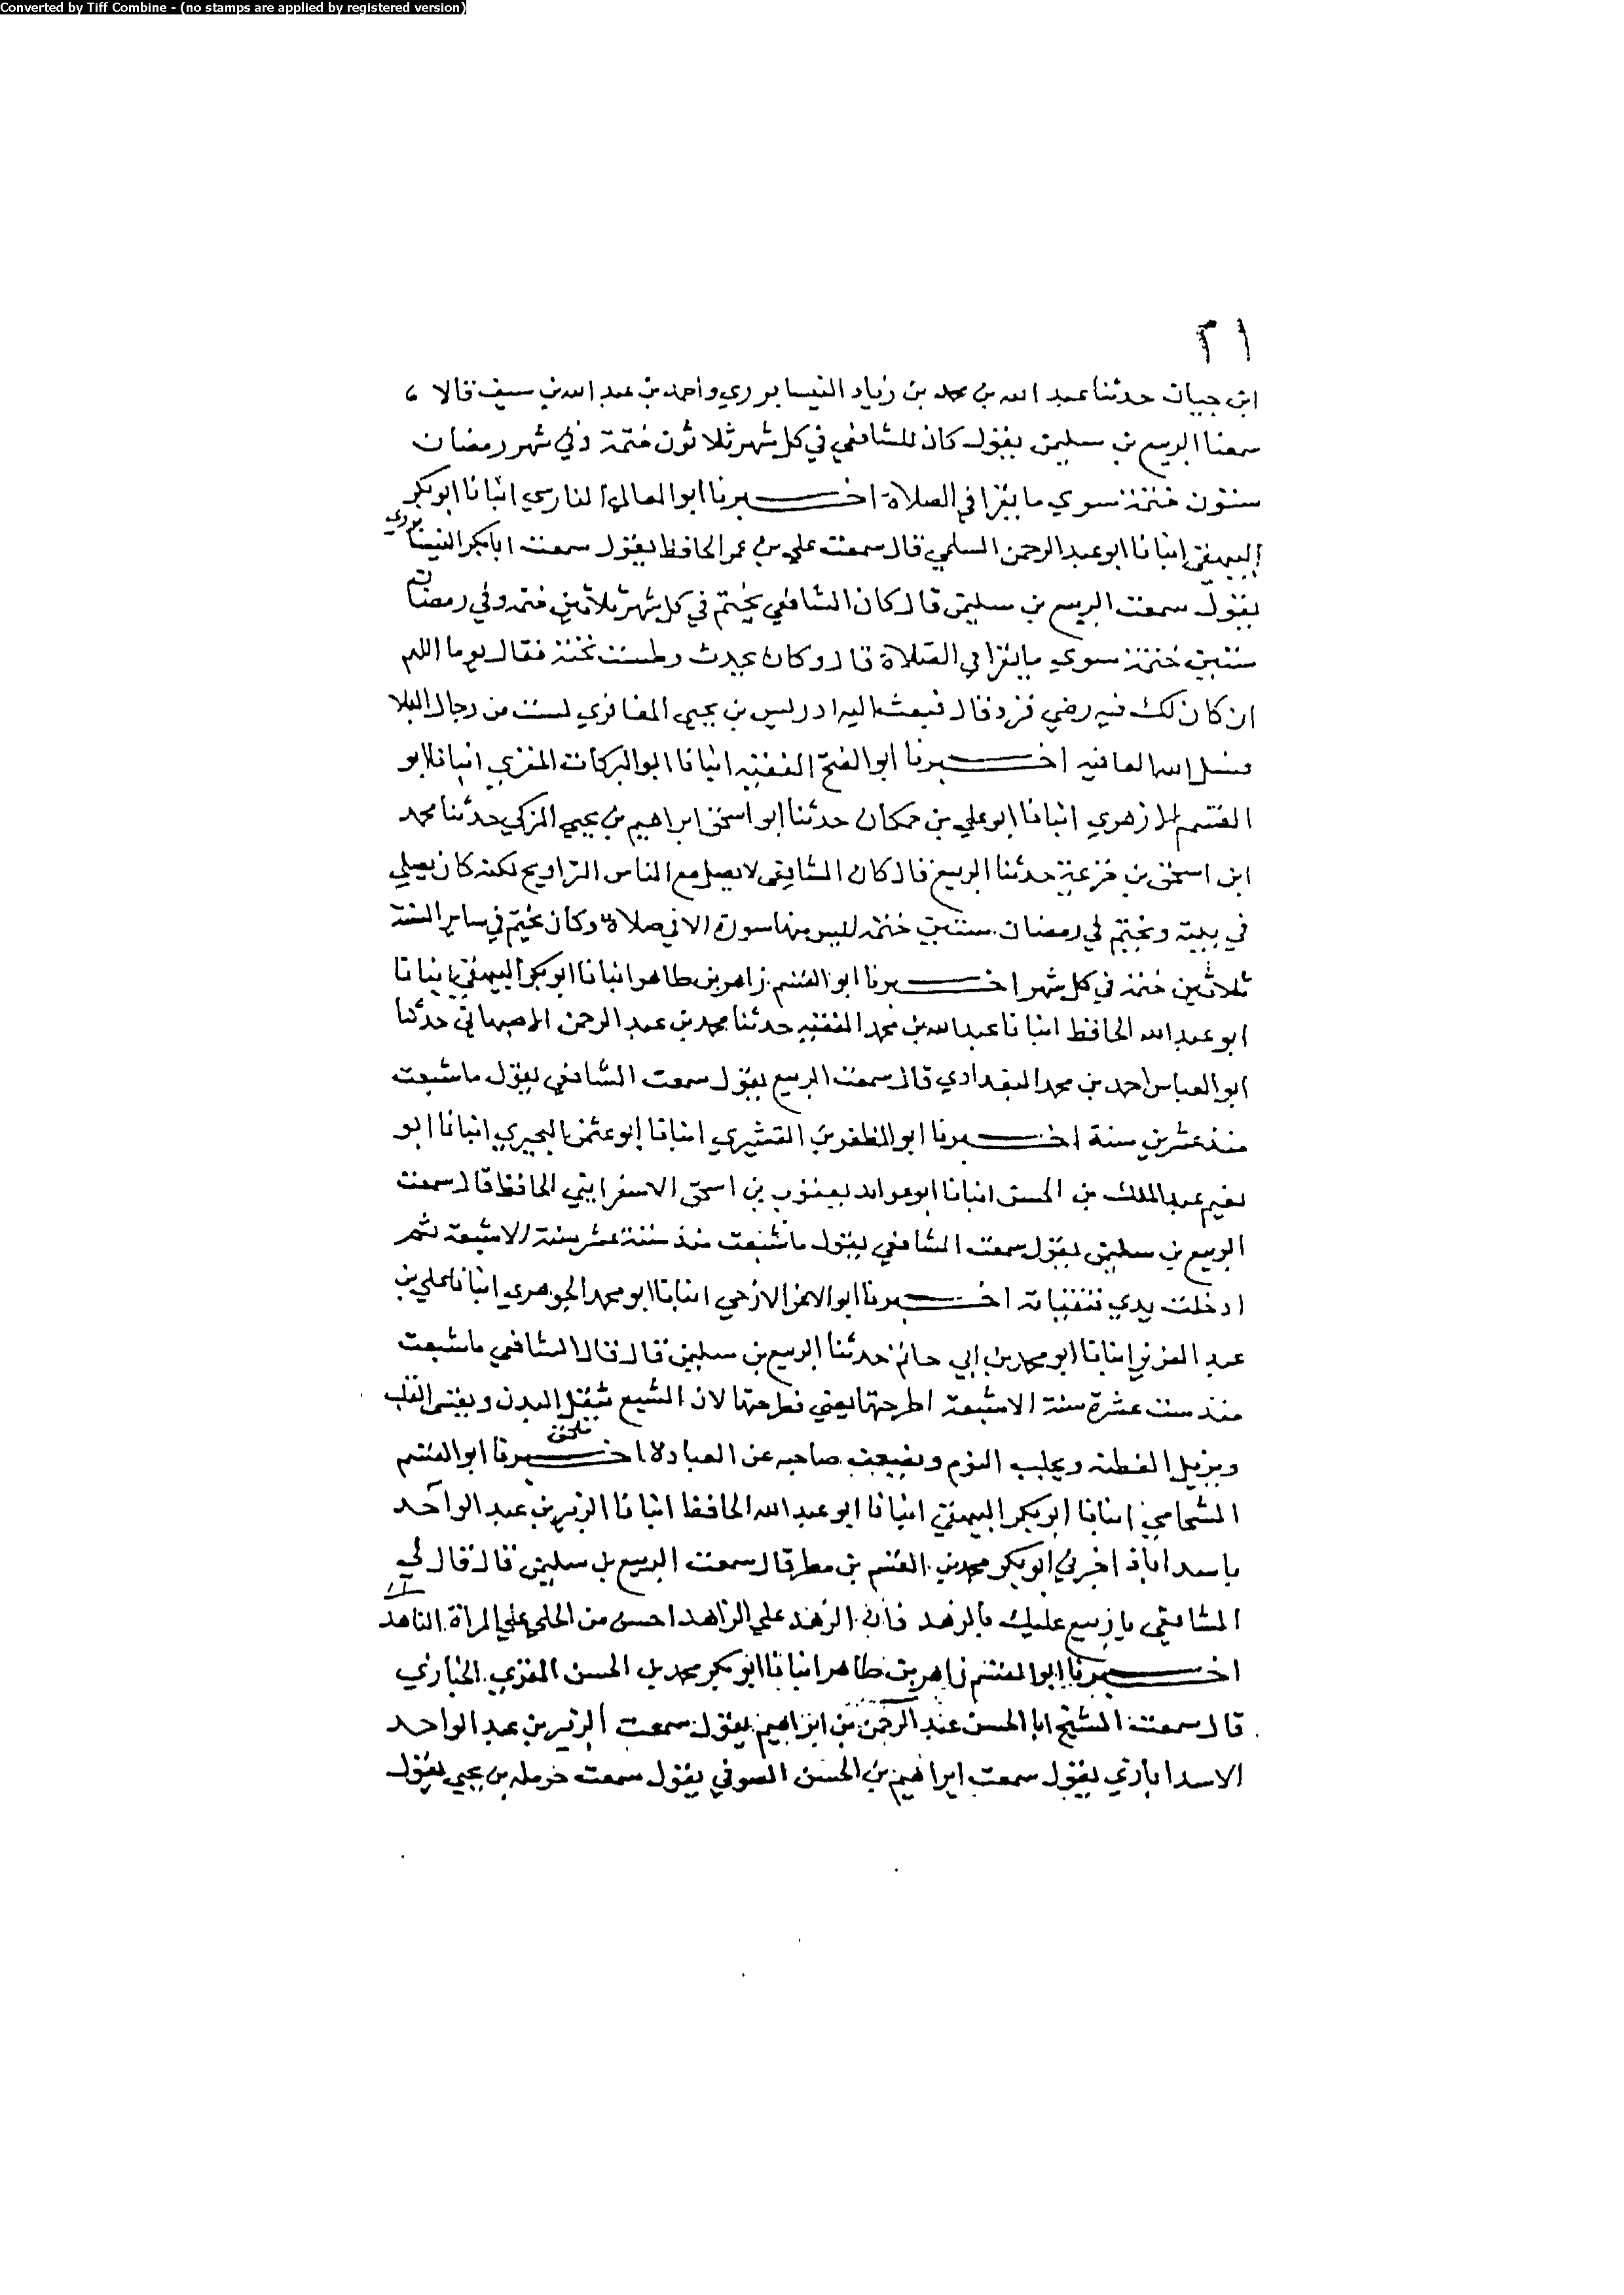 Converted by Tiff Combine - (no stamps are applied by registered version)
٢١
ابن حيان حدثنا عبد الله بن محمد بن زياد النيسابوري واحمد بن عبد الله بن سيف قالا
سمعنا الربيع بن سليمن يقول كان للشافعي في كل شهر ثلاثون ختمة وفي شهر رمضان
ستون ختمة سوي ما يقرا في الصلاة اخبرنا ابو المعالي الفارسي انبانا ابو بكر
البيهقي انبانا ابو عبد الرحمن السلمي قال سمعت علي بن عمر الحافظ يقول سمعت ابا بكر النيسابوري
يقول سمعت الربيع بن سليمن قال كان الشافعي يختم في كل شهر ثلاثين ختمة وفي رمضان
ستين ختمة سوي ما يقرا في الصلاة قال وكان يحدث وطست تحته فقال يوما اللهم
ان كان لك فيه رضي فزد قال فبعث اليه ادريس بن يحيي المعافري لست من رجال البلا
فسل الله العافيه اخبرنا ابو الفتح الفقيه انبانا ابو البركات المقري انبانا ابو
القسم الازهري انبانا ابو علي بن حمكان حدثنا ابو اسحق ابراهيم بن يحيي المزكي حدثنا محمد
ابن اسحق بن خزيمة حدثنا الربيع قال كان الشافعي لا يصلي مع الناس التراويح لكنه كان يصلي
في بيته ويختم في رمضان ستين ختمة ليس منها سورة الا في صلاة وكان يختم في ساير السنة
ثلاثين ختمة في كل شهر اخبرنا ابو القسم زاهر بن طاهر انبانا ابو بكر البيهقي انبانا
ابو عبد الله الحافظ انبانا عبد الله بن محمد الفقيه حدثنا محمد بن عبد الرحمن الاصبهاني حدثنا
ابو العباس احمد بن محمد البغدادي قال سمعت الربيع يقول سمعت الشافعي يقول ما شبعت
منذ عشرين سنة اخبرنا ابو المظفر بن القشيري انبانا ابو عثمن البحيري انبانا ابو
نعيم عبد الملك بن الحسن انبانا ابو عوانه يعقوب بن اسحق الاسفرايني الحافظ قال سمعت
الربيع بن سليمن يقول سمعت الشافعي يقول ما شبعت منذ ستة عشر سنة الا شبعة ثم
ادخلت يدي فتقيات اخبرنا ابو الاعز الازجي انبانا ابو محمد الجوهري انبانا علي بن
عبد العزيز انبانا ابو محمد بن ابي حاتم حدثنا الربيع بن سليمن قال قال الشافعي ما شبعت
منذ ست عشرة سنة الا شبعة اطرحتها يعني فطرحتها لان الشبع يثقل البدن ويقسي القلب
ويزيل الفطنه ويجلب النوم ويضعف صاحبه عن العبادة اخبرنا ابو القسم
الشحامي انبانا ابو بكر البيهقي انبانا ابو عبد الله الحافظ انبانا الزبير بن عبد الواحد
باسداباذ اخبرني ابو بكر محمد بن القسم بن مطر قال سمعت الربيع بن سليمن قال قال لي
الشافعي يا ربيع عليك بالزهد فان الزهد علي الزاهد احسن من الحلي علي المراة الناهد
اخبرنا ابو القسم زاهر بن طاهر انبانا ابو بكر محمد بن الحسن المقري الخبازي
قال سمعت الشيخ ابا الحسن عبد الرحمن بن ابراهيم يقول سمعت الزبير بن عبد الواحد
الاسداباذي يقول سمعت ابراهيم بن الحسن الصوفي يقول سمعت حرمله بن يحيي يقول